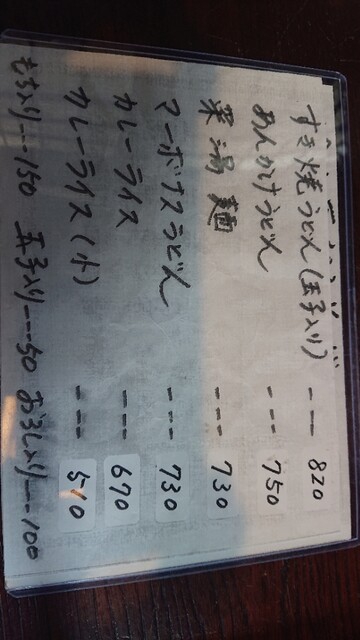 すき焼うどん(玉子入り) --- 820
あんかけうどん --- 750
栗湯麺 --- 730
マーボナスうどん --- 730
カレーライス --- 670
カレーライス(小) --- 510
もち入り---150 玉子入り---50 おろし入り---100